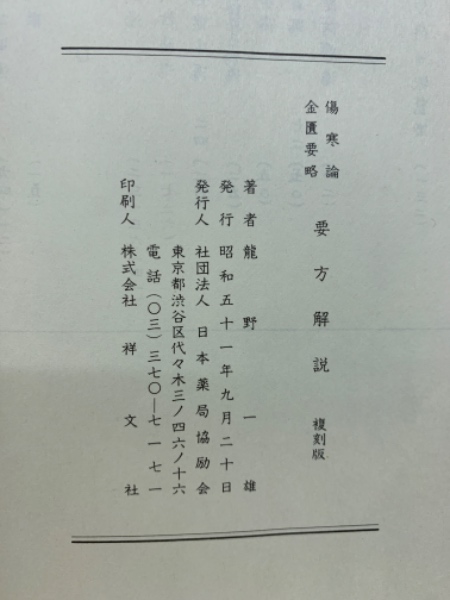 傷寒論
金匱要略
要方解説 複刻版
著者 龍野一雄
発行 昭和五十一年九月二十日
発行人 社団法人 日本薬局協励会
東京都渋谷区代々木三ノ四六ノ十六
電話(〇三)三七〇―七一七一
印刷人 株式会社 祥文社